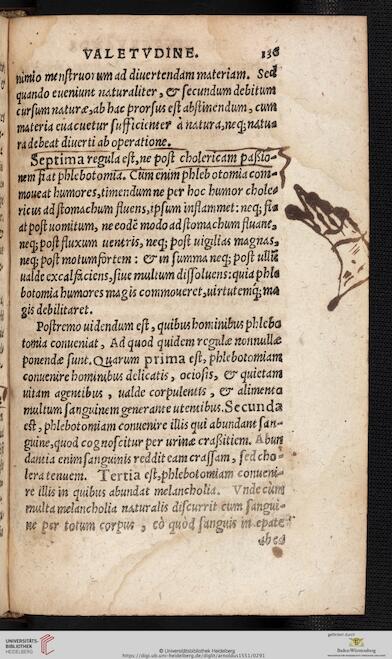 VALETVDINE. 136
nimio menstruorum ad diuertendam materiam. Sed
quando eueniunt naturaliter, & secundum debitum
cursum naturæ, ab hac prorsus est abstinendum, cum
materia euacuetur sufficienter à natura, neq; natu-
ra debeat diuerti ab operatione.
Septima regula est, ne post cholericam passio-
nem fiat phlebotomia. Cùm enim phlebotomia com-
moueat humores, timendum ne per hoc humor chole-
ricus ad stomachum fluens, ipsum inflammet: neq; fi-
at post uomitum, ne eodē modo ad stomachum fluant,
neq; post fluxum uentris, neq; post uigilias magnas,
neq; post motum fortem: & in summa neq; post ullū
ualde excalfaciens, siue multum dissoluens: quia phle
botomia humores magis commoueret, uirtutemq; ma
gis debilitaret.
Postremo uidendum est, quibus hominibus phlebo
tomia conueniat, Ad quod quidem regulæ nonnullæ
ponendæ sunt. Quarum prima est, phlebotomiam
conuenire hominibus delicatis, ociosis, & quietam
uitam agentibus, ualde corpulentis, & alimento
multum sanguinem generante utentibus. Secunda
est, phlebotomiam conuenire illis qui abundant san-
guine, quod cognoscitur per urinæ crassitiem. Abun
dantia enim sanguinis reddit eam crassam, sed cho
lera tenuem. Tertia est, phlebotomiam conueni-
re illis in quibus abundat melancholia. Vnde cùm
multa melancholia naturalis discurrit cum sangui-
ne per totum corpus, eò quòd sanguis in epate
UNIVERSITÄTS-
BIBLIOTHEK
HEIDELBERG
© Universitätsbibliothek Heidelberg
https://digi.ub.uni-heidelberg.de/diglit/arnoldus1551/0291
gefördert durch
Baden-Württemberg